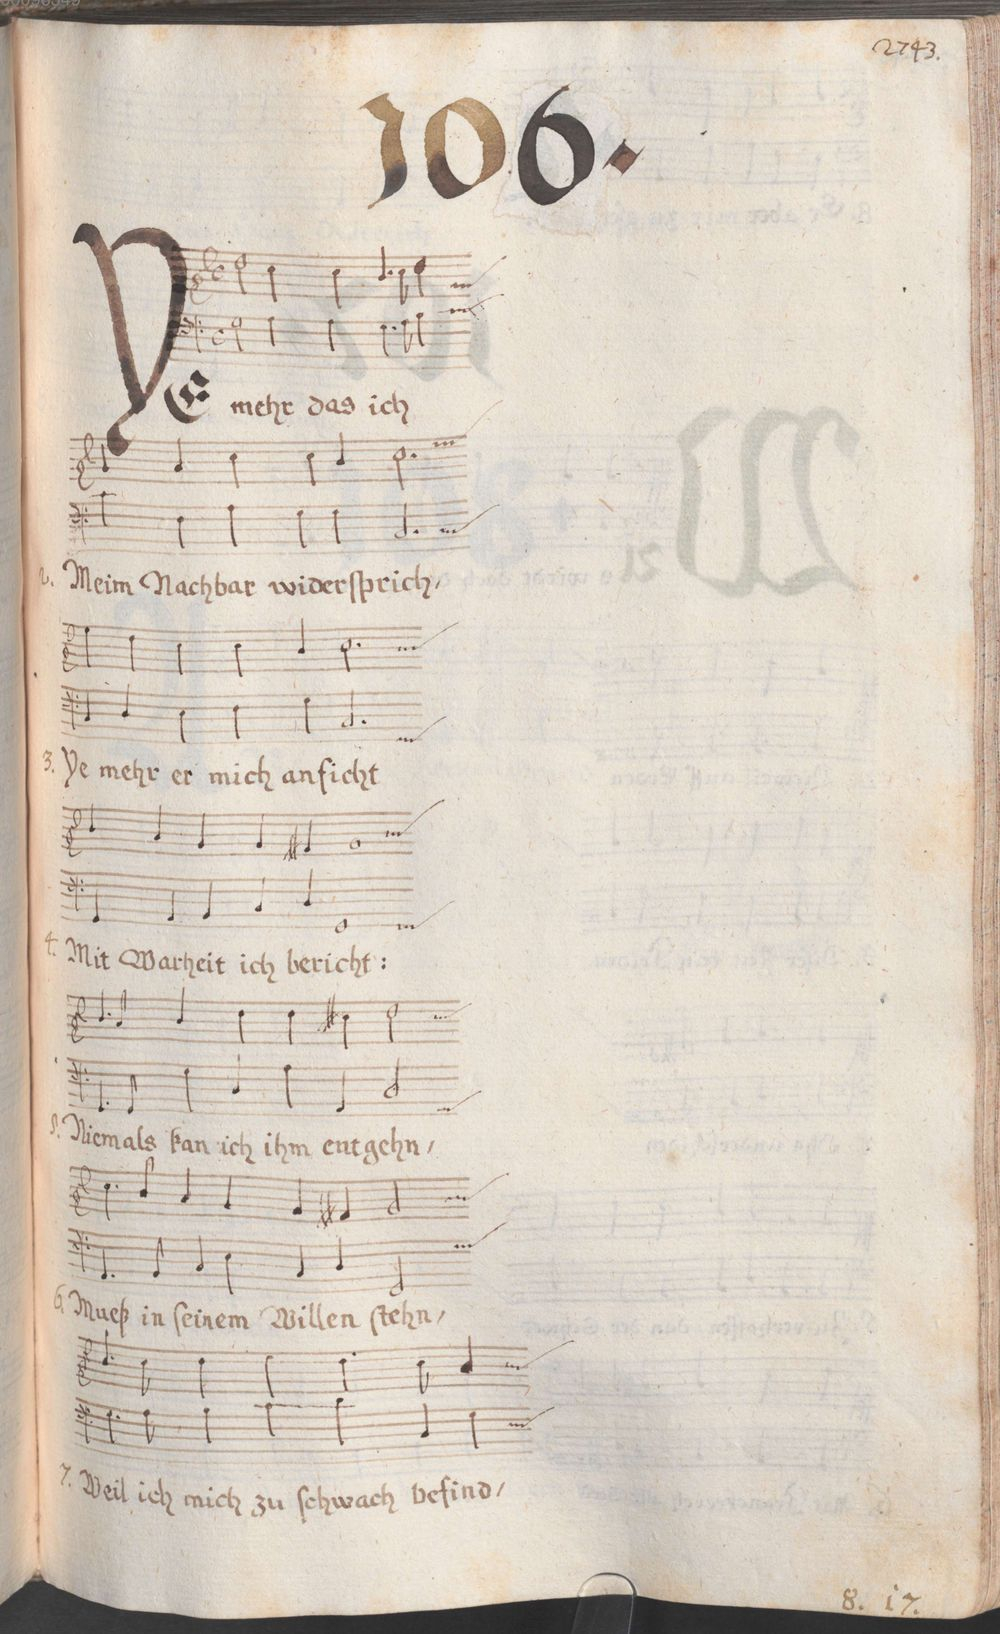 2743.
106.
YE mehr das ich
2. Meim Nachbar widersprich/
3. Ye mehr er mich anficht
4. Mit Warheit ich bericht:
5. Niemals kan ich ihm entgehn/
6. Mueß in seinem Willen stehn/
7. Weil ich mich zu schwach befind/
8. 17.